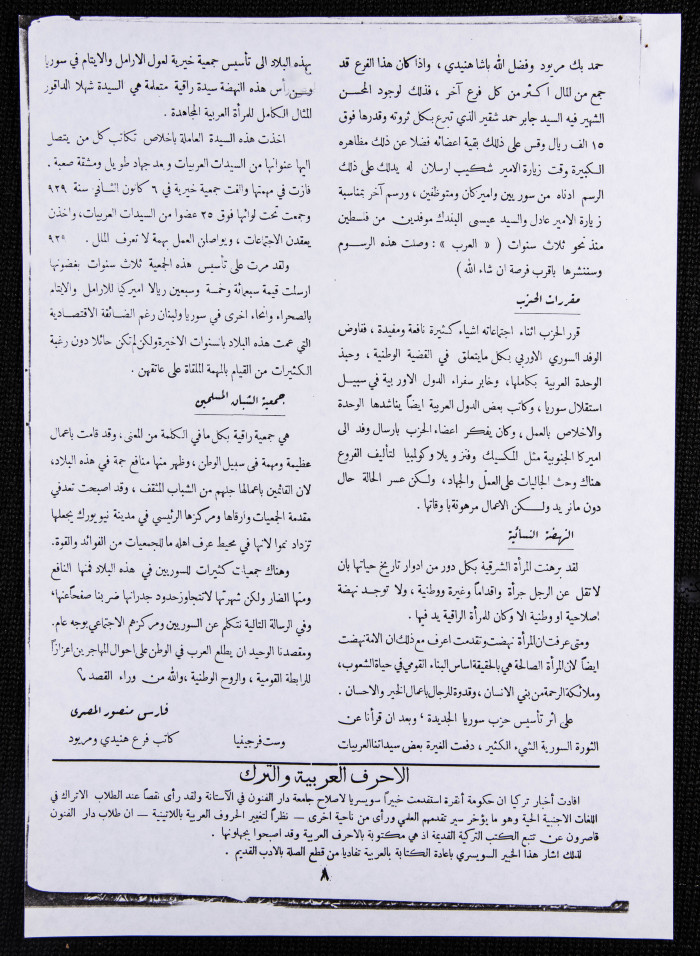 حمد بك مريود وفضل الله باشا هنيدي ، واذا كان هذا الفرع قد
جمع من المال اكثر من كل فرع آخر ، فذلك لوجود المحسن
الشهير فيه السيد جابر حمد شقير الذي تبرع بكل ثروته وقدرها فوق
١٥ الف ريال وقس على ذلك بقية اعضائه فضلا عن ذلك مظاهره
الكبيرة وقت زيارة الامير شكيب ارسلان له يدلك على ذلك
الرسم ادناه من سوريين واميركان ومتوظفين ، ورسم آخر بمناسبة
زيارة الامير عادل والسيد عيسى البندك موفدين من فلسطين
منذ نحو ثلاث سنوات ( « العرب » : وصلت هذه الرسوم
وسننشرها باقرب فرصة ان شاء الله )
مقررات الحزب
قرر الحزب اثناء اجتماعاته اشياء كثيرة نافعة ومفيدة ، ففاوض
الوفد السوري الاوربي بكل ما يتعلق في القضية الوطنية ، وحبذ
الوحدة العربية بكاملها، وخابر سفراء الدول الاوربية في سبيل
استقلال سوريا ، وكاتب بعض الدول العربية ايضاً يناشدها الوحدة
والاخلاص بالعمل ، وكان يفكر اعضاء الحزب بارسال وفد الى
اميركا الجنوبية مثل المكسيك وفنزويلا وكولمبيا لتأليف الفروع
هناك وحث الجاليات على العمل والجهاد، ولكن عسر الحالة حال
دون ما نريد ولكن الاعمال مرهونة باوقاتها .
النهضة النسائية
لقد برهنت المرأة الشرقية بكل دور من ادوار تاريخ حياتها بان
لا تقل عن الرجل جرأة واقداماً وغيرة ووطنية ، ولا توجد نهضة
اصلاحية او وطنية الا وكان للمرأة الراقية يد فيها .
ومتى عرفت ان المرأة نهضت وتقدمت اعرف مع ذلك ان الامة نهضت
ايضاً لان المرأة الصالحة هي بالحقيقة اساس البناء القومي في حياة الشعوب،
وملائكة الرحمة من بني الانسان ، وقدوة للرجال باعمال الخير والاحسان .
على اثر تأسيس حزب سوريا الجديدة ، وبعد ان قرأنا عن
الثورة السورية الشيء الكثير ، دفعت الغيرة بعض سيداتنا العربيات
بهذه البلاد الى تأسيس جمعية خيرية لعول الارامل والايتام في سوريا
رأس هذه النهضة سيدة راقية متعلمة هي السيدة شهلا الداقور
المثال الكامل للمرأة العربية المجاهدة .
اخذت هذه السيدة العاملة باخلاص تكاتب كل من يتصل
اليها عنوانها من السيدات العربيات وبعد جهاد طويل ومشقة صعبة .
فازت في مهمتها والفت جمعية خيرية في ٦ كانون الثاني سنة ٩٢٩
وجمعت تحت لوائها فوق ٢٥ عضوا من السيدات العربيات، واخذن
يعقدن الاجتماعات ، ويواصلن العمل بهمة لا تعرف الملل .
ولقد مرت على تأسيس هذه الجمعية ثلاث سنوات بغضونها
ارسلت قيمة سبعمائة وخمسة وسبعين ريالا اميركيا للارامل والايتام
بالصحراء وانحاء اخرى في سوريا ولبنان رغم الضائقة الاقتصادية
التي عمت هذه البلاد بالسنوات الاخيرة ولكن لم تكن حائلا دون رغبة
الكثيرات من القيام بالمهمة الملقاة على عاتقهن .
جمعية الشبان المسلمين
هي جمعية راقية بكل ما في الكلمة من المعنى، وقد قامت باعمال
عظيمة ومهمة في سبيل الوطن ، وظهر منها منافع جمة في هذه البلاد،
لان القائمين باعمالها جلهم من الشباب المثقف ، وقد اصبحت تعد في
مقدمة الجمعيات وارقاها ومركزها الرئيسي في مدينة نيويورك يجعلها
تزداد نموا لانها في محيط عرف اهله ما للجمعيات من الفوائد والقوة.
وهناك جمعيات كثيرات للسوريين في هذه البلاد فمنها النافع
ومنها الضار ولكن شهرتها لا تتجاوز حدود جدرانها ضربنا صفحا عنها،
وفي الرسالة التالية نتكلم عن السوريين ومركزهم الاجتماعي بوجه عام.
ومقصدنا الوحيد ان يطلع العرب في الوطن على احوال المهاجرين اعزازاً
للرابطة القومية ، والروح الوطنية ، والله من وراء القصد ؟
فارس منصور المصري
وست فرجيفيا كاتب فرع هنيدي ومريود
الاحرف العربية والترك
افادت أخبار تركيا ان حكومة أنقرة استقدمت خبيراً سويسريا لاصلاح جامعة دار الفنون في الآستانة ولقد رأى نقصاً عند الطلاب الاتراك في
اللغات الاجنبية الحية وهو ما يؤخر سير تقدمهم العلمي ورأى من ناحية اخرى — نظراً لتغيير الحروف العربية باللاتينية — ان طلاب دار الفنون
قاصرون عن تتبع الكتب التركية القديمة اذ هي مكتوبة بالاحرف العربية وقد اصبحوا يجهلونها .
لذلك اشار هذا الخبير السويسري باعادة الكتابة بالعربية تفاديا من قطع الصلة بالادب القديم .
٨